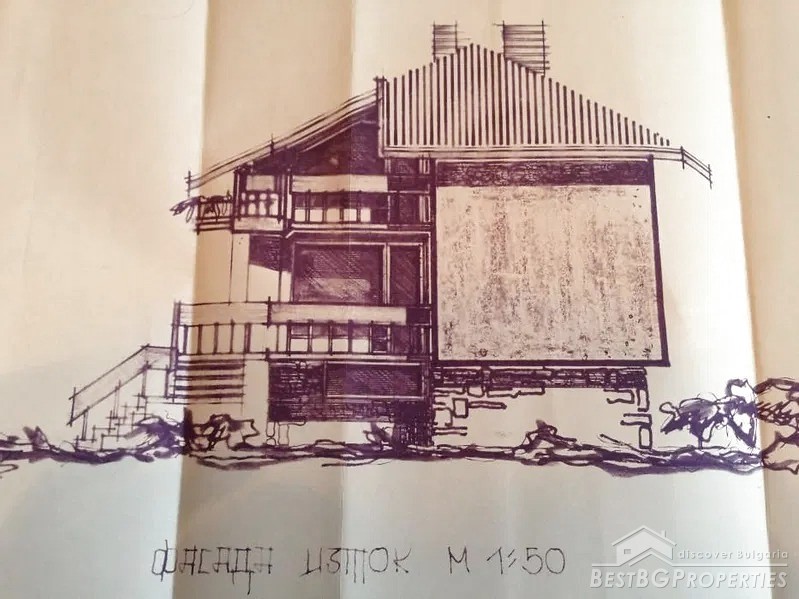 ФАСАДА ИЗТОК М 1:50
discover Bulgaria
BESTBGPROPERTIES